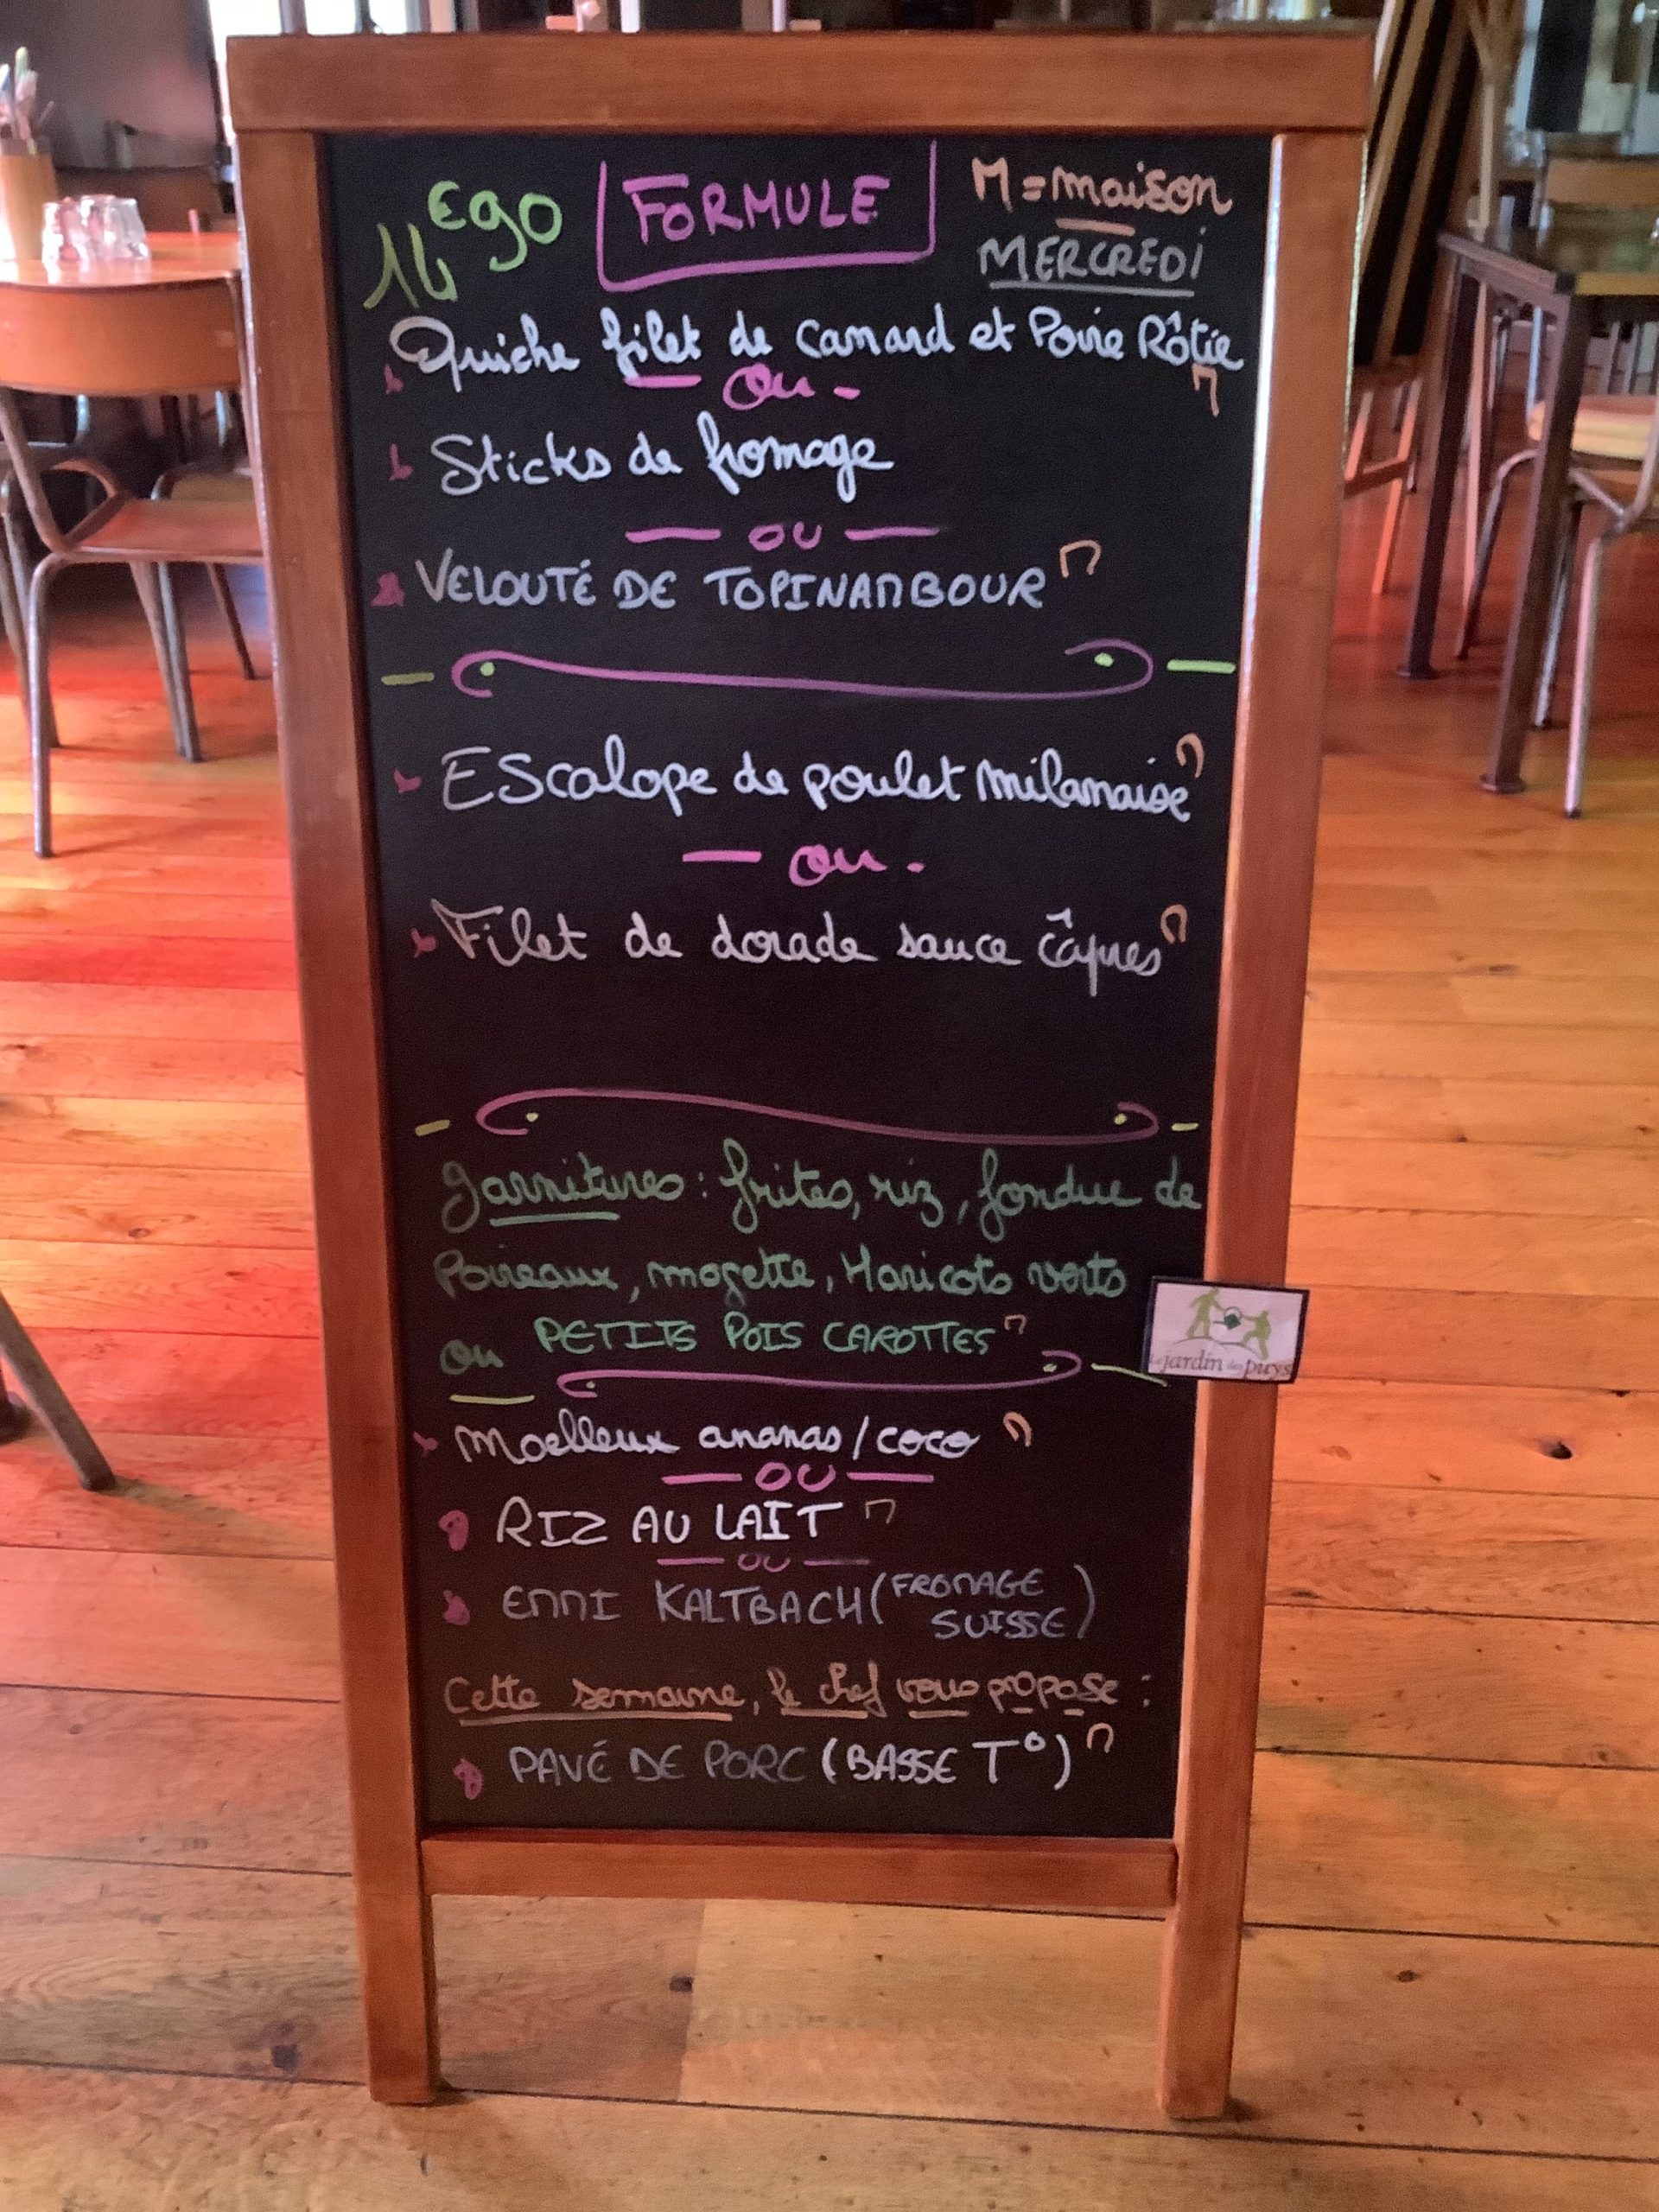 14€90 FORMULE M=maison
MERCREDI
Quiche filet de canard et Poire Rôtie M
- ou -
Sticks de fromage
- OU -
VELOUTÉ DE TOPINAMBOUR M
EScalope de poulet milanaise M
- ou -
Filet de dorade sauce câpres M
garnitures : frites, riz, fondue de
Poireaux, mogette, Haricots verts
ou PETITS POIS CAROTTES M
Le jardin des puys
Moelleux ananas/coco M
- OU -
RIZ AU LAIT M
- OU -
EMMI KALTBACH (FROMAGE
SUISSE)
Cette semaine, le chef vous propose :
PAVÉ DE PORC (BASSE T°) M